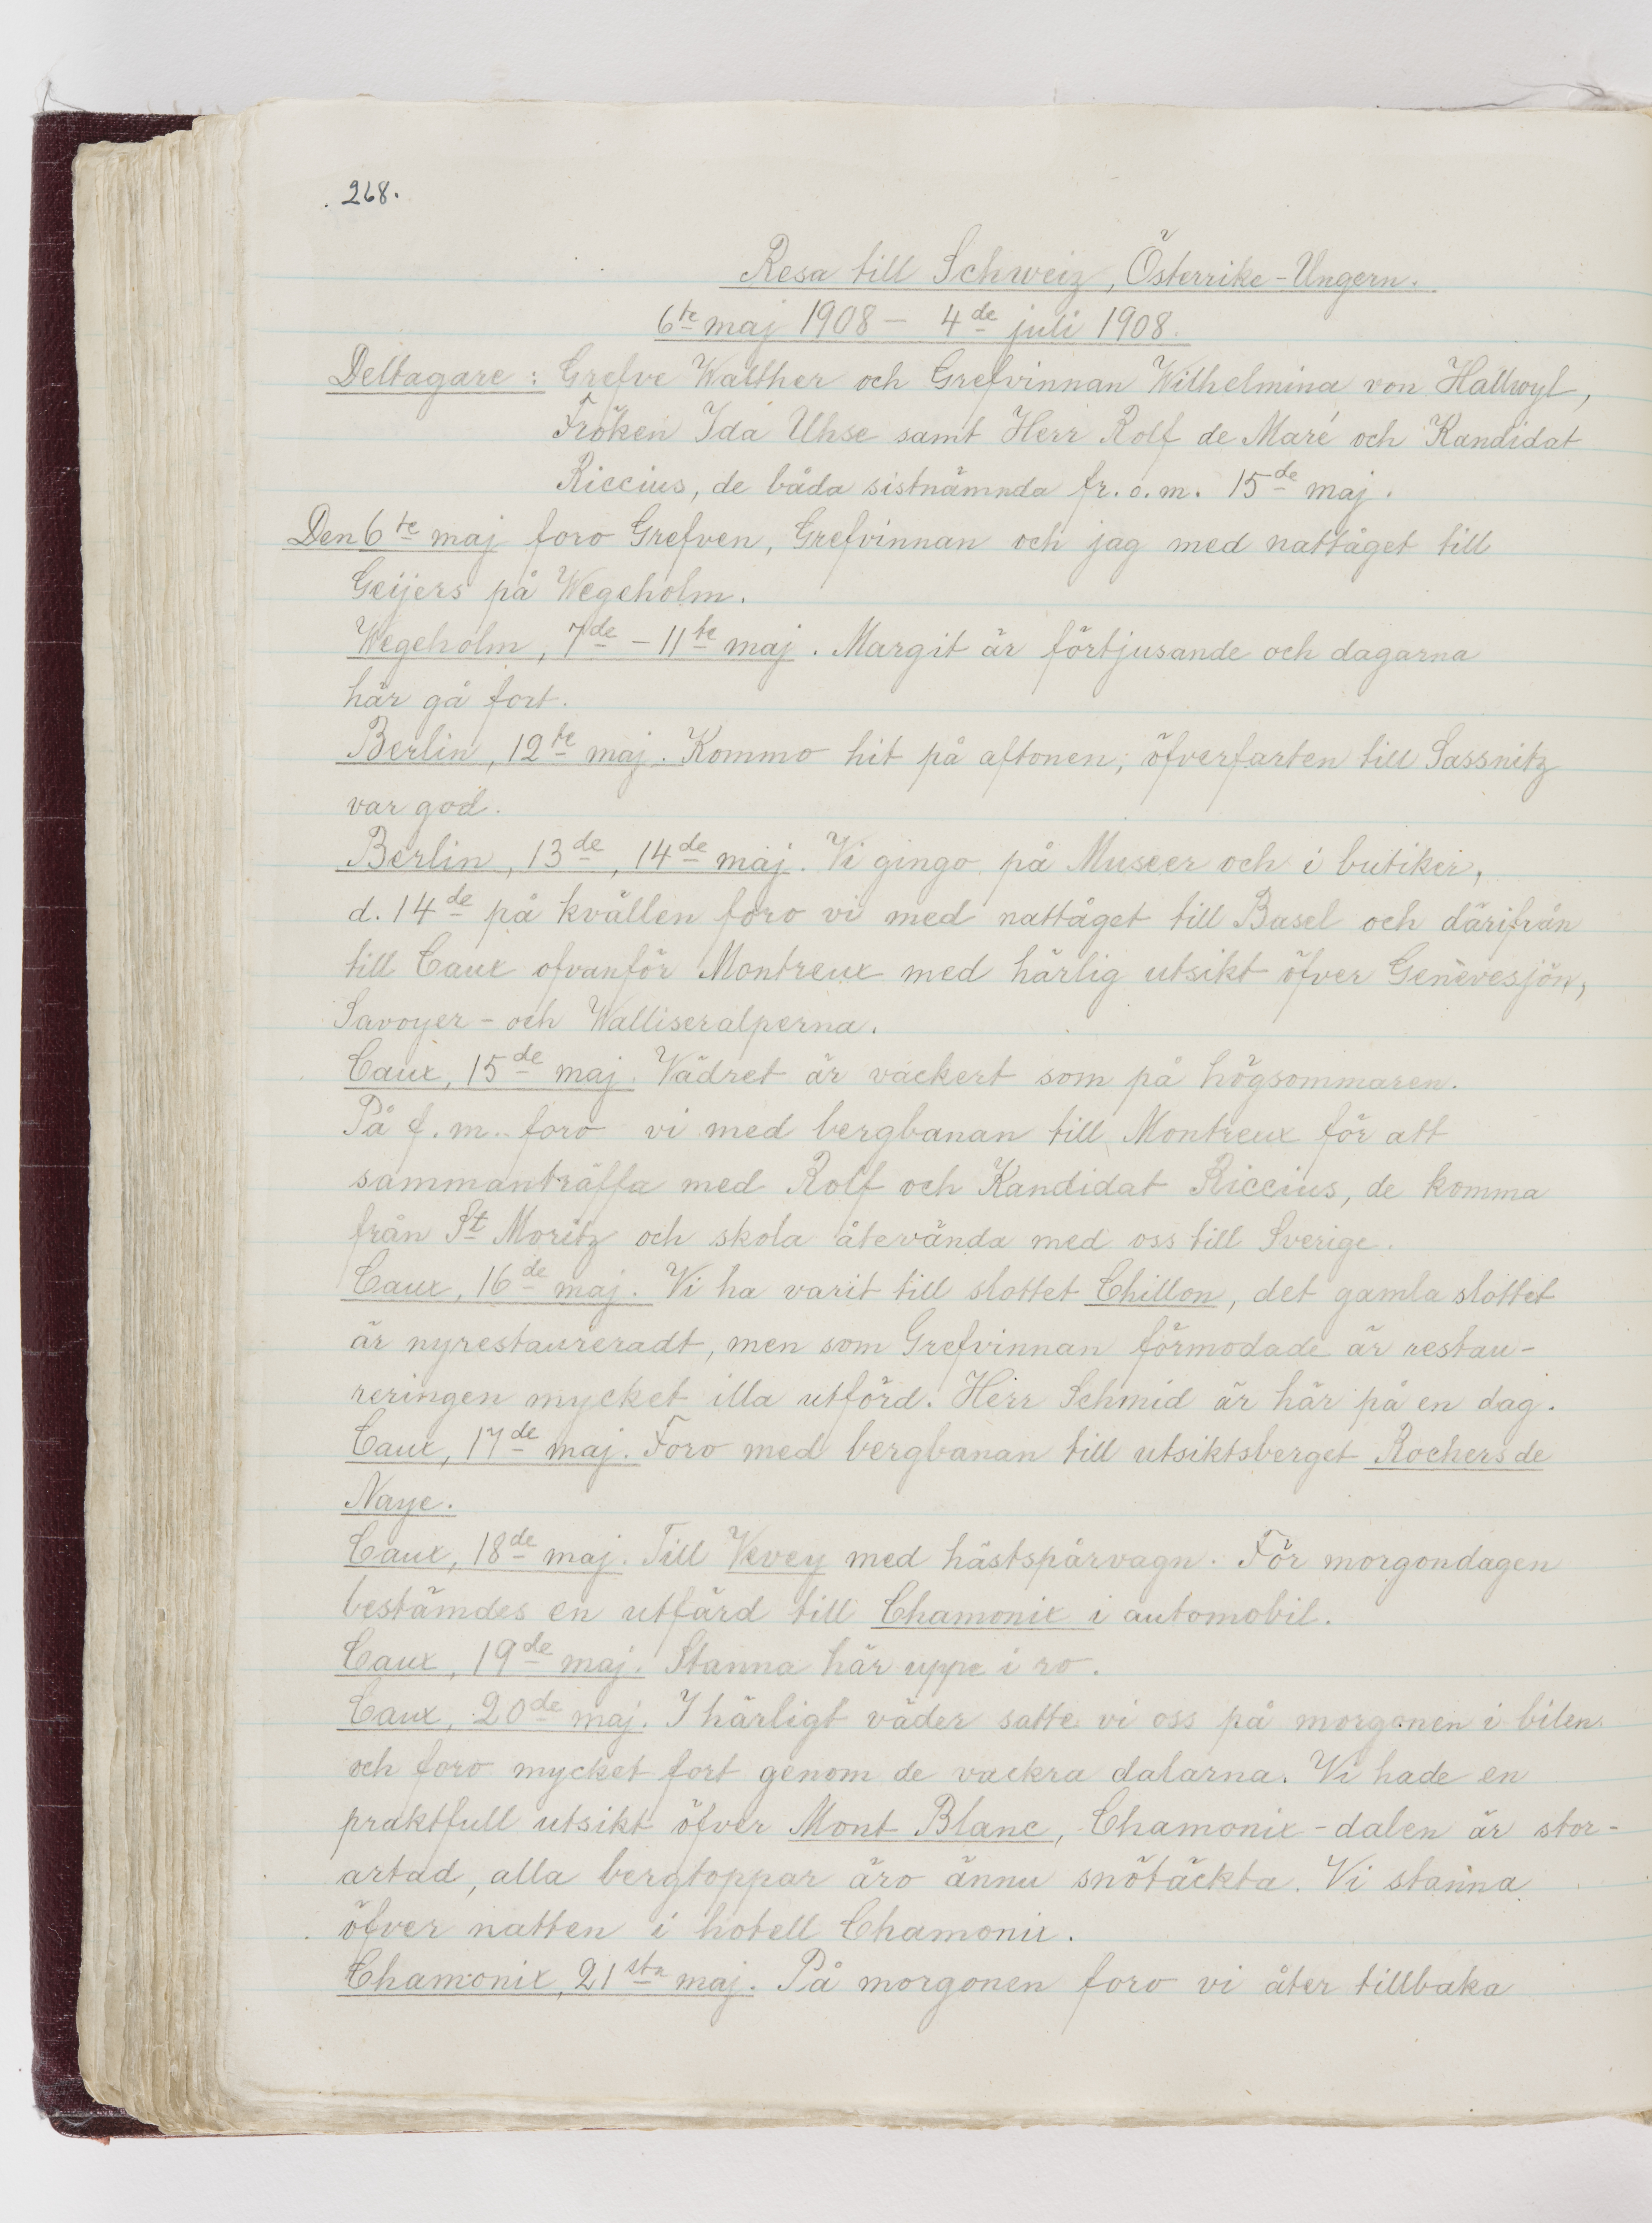 268.
Resa till Schweiz, Österrike-Ungern.
6te maj 1908 - 4de juli 1908.
Deltagare: Grefve Walther och Grefvinnan Wilhelmina von Hallwyl,
Fröken Ida Uhse samt Herr Rolf de Maré och Kandidat
Riccius, de båda sistnämnda fr. o. m. 15de maj.
Den 6te maj foro Grefven, Grefvinnan och jag med nattåget till
Geijers på Wegeholm.
Wegeholm, 7de - 11te maj. Margit är förtjusande och dagarna
här gå fort.
Berlin, 12te maj. Kommo hit på aftonen; öfverfarten till Sassnitz
var god.
Berlin, 13de, 14de maj. Vi gingo på Museer och i butiker,
d. 14de på kvällen foro vi med nattåget till Basel och därifrån
till Caux ofvanför Montreux med härlig utsikt öfver Genèvesjön,
Savoyer- och Walliseralperna.
Caux, 15de maj. Vädret är vackert som på högsommaren.
På f. m. foro vi med bergbanan till Montreux för att
sammanträffa med Rolf och Kandidat Riccius, de komma
från St Moritz och skola återvända med oss till Sverige.
Caux, 16de maj. Vi ha varit till slottet Chillon, det gamla slottet
är nyrestaureradt, men som Grefvinnan förmodade är restau-
reringen mycket illa utförd. Herr Schmid är här på en dag.
Caux, 17de maj. Foro med bergbanan till utsiktsberget Rochers de
Naye.
Caux, 18de maj. Till Vevey med hästspårvagn. För morgondagen
bestämdes en utfärd till Chamonix i automobil.
Caux, 19de maj. Stanna här uppe i ro.
Caux, 20de maj. I härligt väder satte vi oss på morgonen i bilen
och foro mycket fort genom de vackra dalarna. Vi hade en
praktfull utsikt öfver Mont Blanc, Chamonix-dalen är stor-
artad, alla bergtoppar äro ännu snötäckta. Vi stanna
öfver natten i hotell Chamonix.
Chamonix, 21sta maj. På morgonen foro vi åter tillbaka